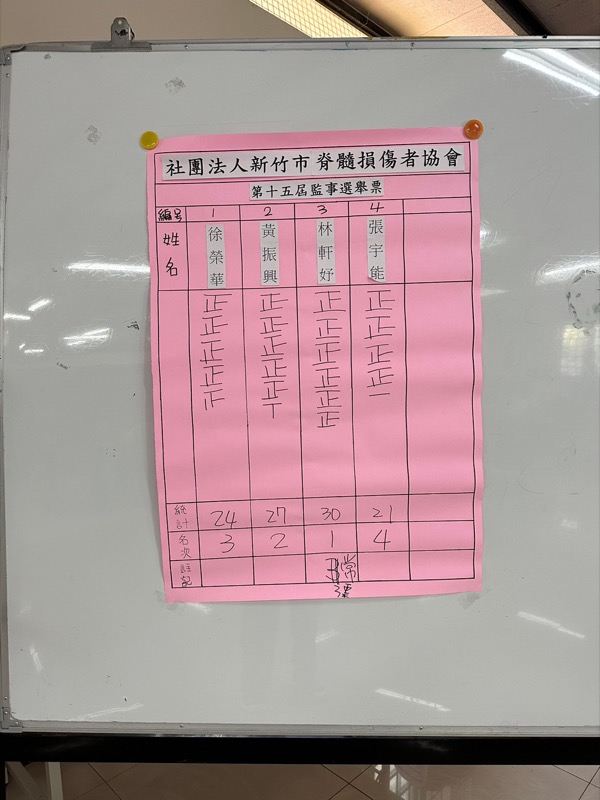 社團法人新竹市脊髓損傷者協會
第十五屆監事選舉票
編号 1 2 3 4
姓名 徐榮華 黃振興 林軒妤 張宇能
正正正正正 正正正正正丅 正正正正正正 正正正正一
統計 24 27 30 21
名次 3 2 1 4
註記 常